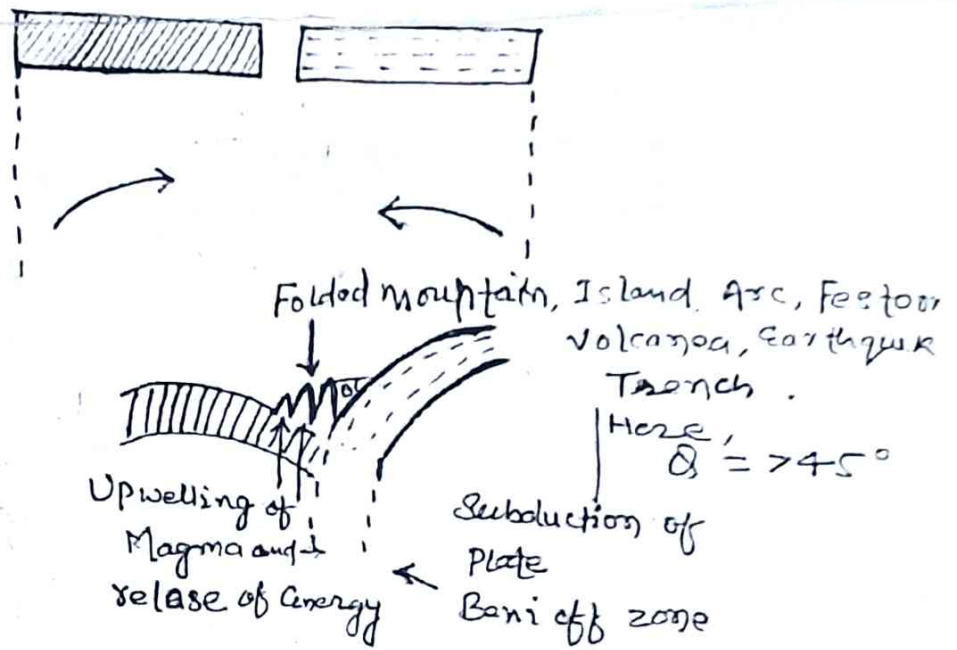 Folded mountain, Island Arc,
Volcanoa, Earthquk
Trench.
Here,
Q = >45°
Upwelling of
Magma and
relase of energy
Subduction of
Plate
Beni off zone